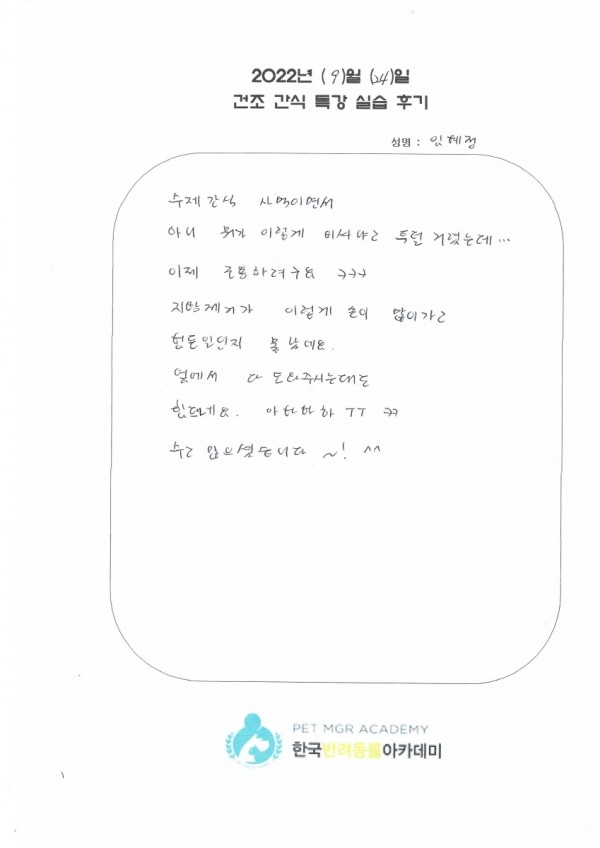 2022년 (9)월 (24)일
건조 간식 특강 실습 후기
성명 : 임혜정
수제간식 사먹이면서
아니 뭐가 이렇게 비싸냐고 투덜 거렸는데...
이제 존중하려구요 ㅋㅋㅋ
지방제거가 이렇게 손이 많이가고
힘든일인지 몰랐네요.
옆에서 다 도와주시는데도
힘드네요. 아하하하 ㅜㅜ ㅋㅋ
수고 많으셨습니다 ~! ^^
PET MGR ACADEMY
한국반려동물아카데미